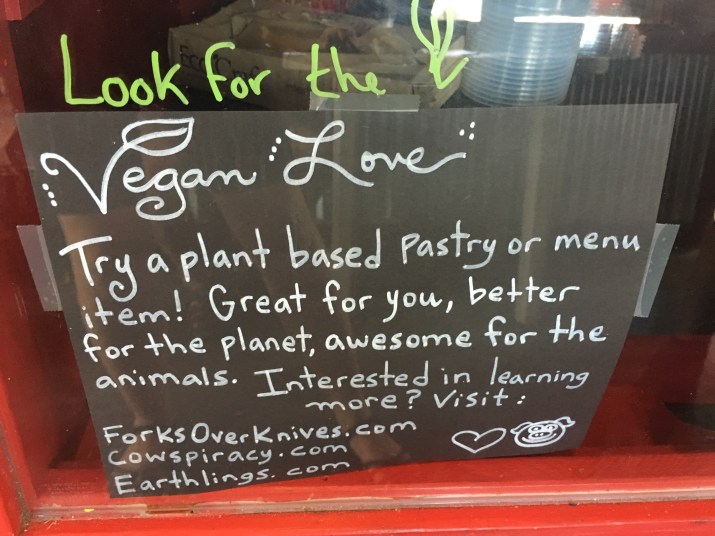 Look for the
Vegan Love
Try a plant based Pastry or menu
item! Great for you, better
for the planet, awesome for the
animals. Interested in learning
more? Visit:
ForksOverKnives.com
Cowspiracy.com
Earthlings.com